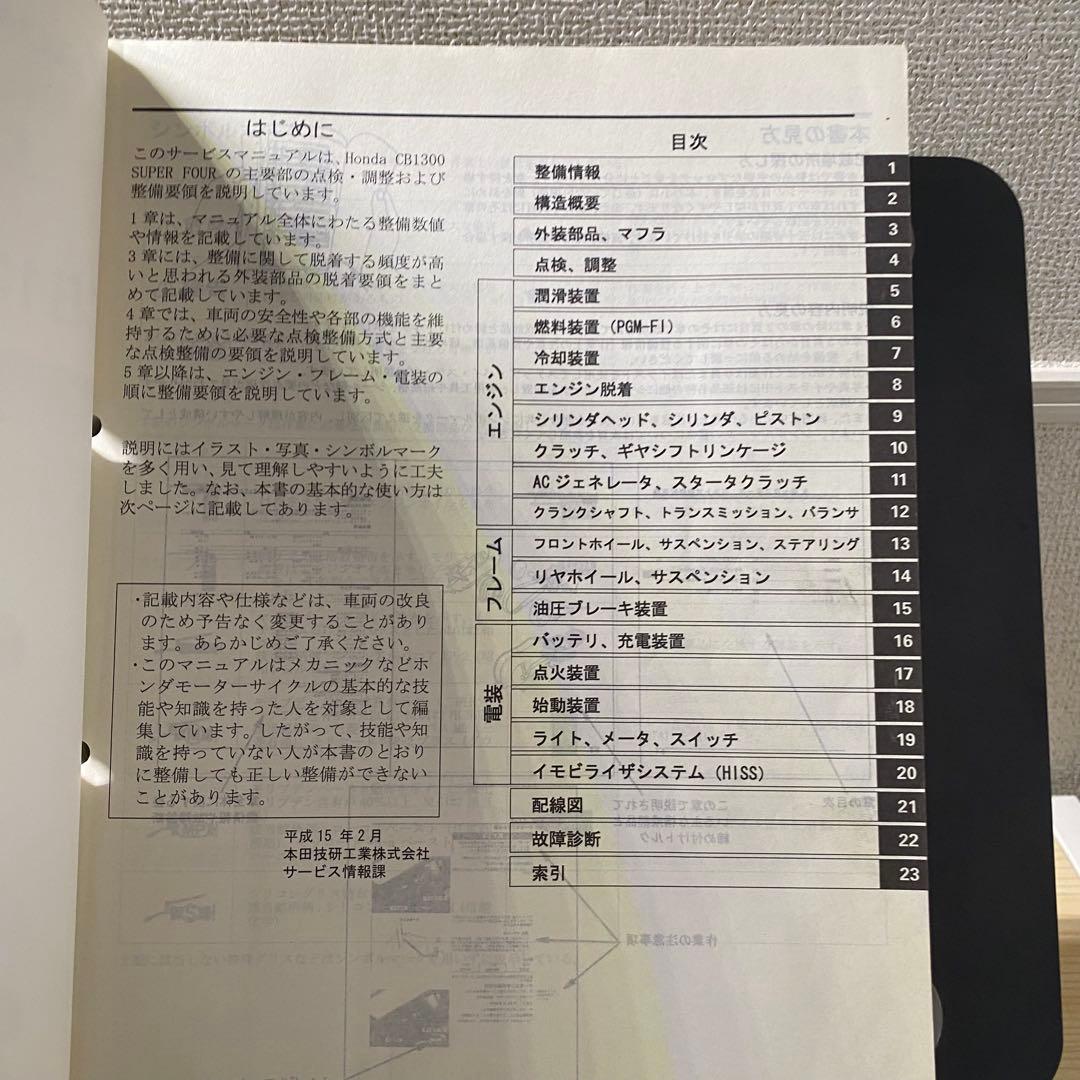 はじめに
このサービスマニュアルは、Honda CB1300
SUPER FOUR の主要部の点検・調整および
整備要領を説明しています。
1章は、マニュアル全体にわたる整備数値
や情報を記載しています。
3章には、整備に関して脱着する頻度が高
いと思われる外装部品の脱着要領をまと
めて記載しています。
4章では、車両の安全性や各部の機能を維
持するために必要な点検整備方式と主要
な点検整備の要領を説明しています。
5章以降は、エンジン・フレーム・電装の
順に整備要領を説明しています。
説明にはイラスト・写真・シンボルマーク
を多く用い、見て理解しやすいように工夫
しました。なお、本書の基本的な使い方は
次ページに記載してあります。
・記載内容や仕様などは、車両の改良
のため予告なく変更することがあり
ます。あらかじめご了承ください。
・このマニュアルはメカニックなどホ
ンダモーターサイクルの基本的な技
能や知識を持った人を対象として編
集しています。したがって、技能や知
識を持っていない人が本書のとおり
に整備しても正しい整備ができない
ことがあります。
平成15年2月
本田技研工業株式会社
サービス情報課
目次
整備情報 1
構造概要 2
外装部品、マフラ 3
点検、調整 4
エンジン
潤滑装置 5
燃料装置（PGM-FI） 6
冷却装置 7
エンジン脱着 8
シリンダヘッド、シリンダ、ピストン 9
クラッチ、ギヤシフトリンケージ 10
ACジェネレータ、スタータクラッチ 11
クランクシャフト、トランスミッション、バランサ 12
フレーム
フロントホイール、サスペンション、ステアリング 13
リヤホイール、サスペンション 14
油圧ブレーキ装置 15
電装
バッテリ、充電装置 16
点火装置 17
始動装置 18
ライト、メータ、スイッチ 19
イモビライザシステム（HISS） 20
配線図 21
故障診断 22
索引 23